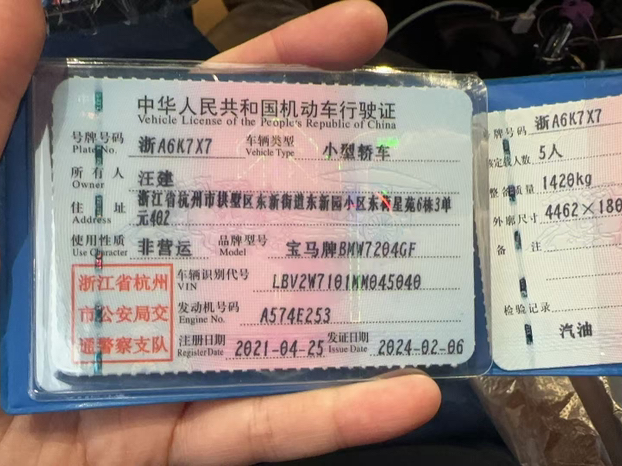 中华人民共和国机动车行驶证
Vehicle License of the People's Republic of China
号牌号码 浙A6K7X7 车辆类型 小型轿车
Plate No. Vehicle Type
所有人 汪建
Owner
住址 浙江省杭州市拱墅区东新街道东新园小区东 星苑6栋3单
Address 元402
使用性质 非营运 品牌型号 宝马牌BMW7204GF
Use Character Model
浙江省杭州
市公安局交
通警察支队
车辆识别代号 LBV2W7101MM045040
VIN
发动机号码 A574E253
Engine No.
注册日期 2021-04-25 发证日期 2024-02-06
Register Date Issue Date
牌号码 浙A6K7X7
定载人数 5人
整备质量 1420kg
外廓尺寸 4462×180
备注
检验记录
汽油